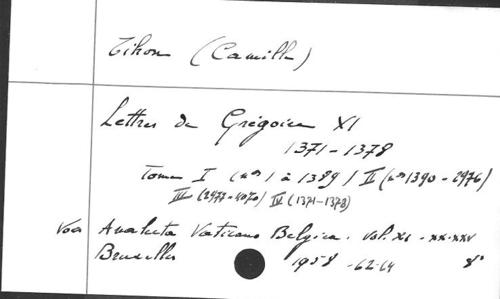 Tihon (Camille)
Lettres de Grégoire XI
1371-1378
Tome I (nos 1 à 1389) II (nos 1390-2976)
III (2977-4070) IV (1371-1378)
Analecta Vaticano Belgica. vol. XI - XX. XXV
Bruxelles 1958 - 62-64 8°